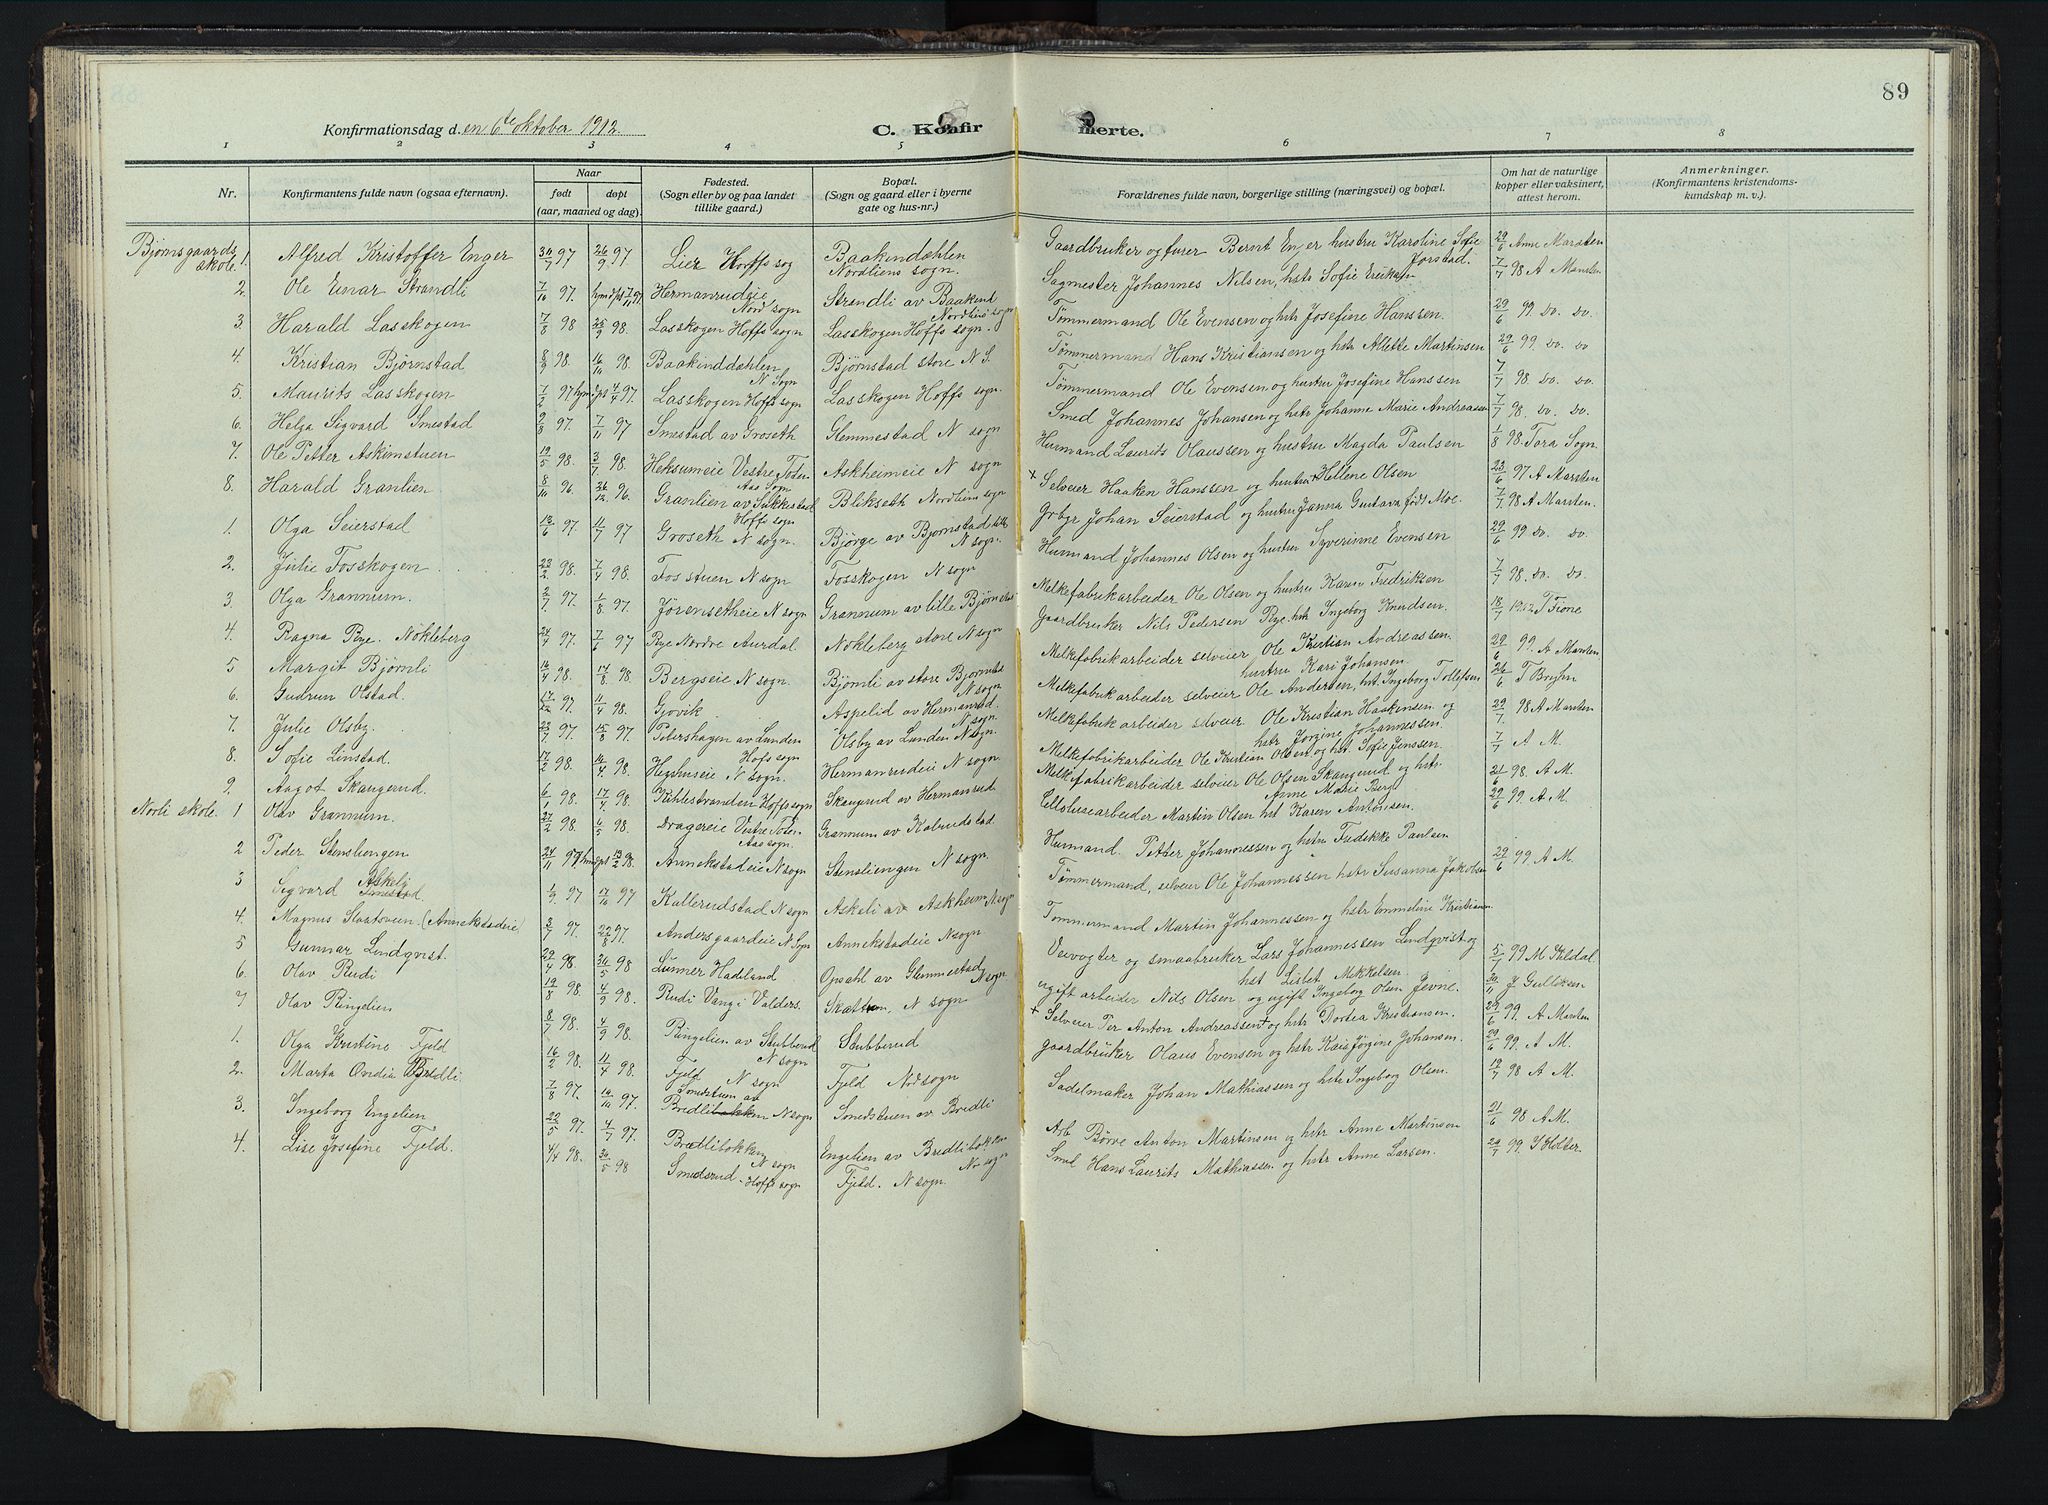 89
Konfirmationsdag d. en 6te oktober 1912.
C. Konfirmerte.
1 2 3 4 5 6 7 8
Nr.
Konfirmantens fulde navn (ogsaa efternavn).
Naar
født
døpt
(aar, maaned og dag).
Fødested.
(Sogn eller by og paa landet
tillike gaard.)
Bopæl.
(Sogn og gaard eller i byerne
gate og hus-nr.)
Forældrenes fulde navn, borgerlige stilling (næringsvei) og bopæl.
Om hat de naturlige
kopper eller vaksinert,
attest herom.
Anmerkninger.
(Konfirmantens kristendoms-
kundskap m. v.).
Bjørnsgaards skole. 1. Alfred Kristoffer Enger 30/7 97 26/9 97 Lier Hoffs sog Baakindahlen Nordliens sogn. Gaardbruker og furer Bernt Enger hustru Karoline Sofie Jorstad. 29/6 Anne Marsten
2. Ole Einar Strandli 7/10 97. hjmdpt 7/11 97 Hermanrudeie Nord sogn Strendli av Baakind Nordlins sogn Sagmester Johannes Nilsen, hstr Sofie Eriksen 7/7 98 A Marsten
3. Harald Lasskogen 7/8 98 25/9 98. Lasskogen Hoffs sogn Lasskogen Hoffs sogn. Tømmermand Ole Evensen og hstr Josefine Hanssen. 29/6 99. do. do.
4. Kristian Bjørnstad 8/9 98. 16/10 98. Baakinddahlen N Sogn Bjørnstad store N S. Tømmermand Hans Kristiansen og hstr Alette Martinsen 29/6 99. do. do
5. Maurits Lasskogen 7/2 97 hjmdpt 4/4 97. Lasskogen Hoffs sogn Lasskogen Hoffs sogn. Tømmermand Ole Evensen og hustru Josefine Hanssen 7/7 98. do. do.
6. Helge Sigvard Smestad 9/8 97. 7/11 97 Smestad av Groseth Glemmestad N sogn Smed Johannes Johansen og hstr Johanne Marie Andreassen 7/7 98. do. do.
7. Ole Petter Askimstuen 19/5 98. 3/7 98. Heksumeie Vestre Toten Aas Sogn Askheimeie N sogn Husmand Laurits Olaussen og hustru Magda Paulsen 1/8 98. Tora Sogn
8. Harald Granlien 8/10 96. 26/12 96. Granlien av Sukkestad Hoffs sogn Blikseth Nordliens sogn + Selveier Haaken Hanssen og hustru + Hellene Olsen 23/6 97 A Marsten
1. Olga Seierstad 13/6 97. 11/7 97 Groseth N sogn. Bjørge av Bjørnstad lille N sogn. Grbgr Johan Seierstad og hustru Janna Gustava født Moe. 7/7 98 A Marsten.
2. Julie Fosskogen 23/2 98. 7/4 98. Fosstuen N sogn Fosskogen N sogn Husmand Johannes Olsen og hustru Syverinne Evensen 29/6 99 do do.
3. Olga Grannum. 2/7 97. 1/8 97. Jørensetheie N sogn Grannum av lille Bjørnestad Melkefabrikarbeider Ole Olsen og hustru Karen Fredriksen 7/7 98. do. do.
4. Ragna Rye. Nøkleberg 24/4 97. 7/6 97 Rye Nordre Aurdal. Nøkleberg store N sogn Gaardbruker Nils Pedersen Rye. hst Ingeborg Knudsen. 18/7 1902 T Fione
5 Margit Bjørnli 16/4 98. 17/8 98 Bergseie N sogn. Bjørnli av store Bjørnestad N sogn. Melkefabrikarbeider selveier Ole Kristian Andreassen. hustru Kari Johansen. 29/6 99. A Marsten
6. Gudrun Olstad. 17/12 97. 11/4 98. Gjøvik. Aspelid av Hermanrud. Melkefabrikarbeider selveier Ole Andersen, hst. Ingeborg Tollefsen 26/6 T Bryhn
7. Julie Olsby. 23/7 97. 15/8 97. Petershagen av Lunden Hofs sogn Ølsby av Lunden N sogn. Melkefabrikarbeider selveier Ole Kristian Haakensen og hstr Jorgine Johannessen 29/7 98 A Marsten
8. Sofie Linstad. 17/2 98. 16/4 98. Heghuseie N sogn. Hermanrudeie N sogn. Melkefabrikarbeider Ole Kristian Olsen og hst Sofie Jenssen. 7/7 A M.
9. Aagot Skangerud. 6/1 98. 17/4 98. Kihlestranden Hoffs sogn Skangrud av Hermanrud Melkefabrikarbeider selveier Ole Olsen Skangrud og hstr. Anne Marie Berg 21/6 98. A M.
Norli skole. 1 Olav Grannum. 27/2 98. 6/5 98. Dragereie Vestre Toten Aas sogn. Grannum av Kobrudstad Cellulusearbeider Martin Olsen hst Karen Antonsen. 29/6 99. A M.
2 Peder Stenshengen 24/11 97 hmdpt 13/2 98. Annekstadeie N sogn Stensliengen N sogn. Husmand. Petter Johannessen og hstr Fredikke Paulsen
3 Sigvard Askeli Smestad. 1/9 97 17/10 97 Kallerudstad N sogn Askeli av Askheim N sogn Tømmermand, selveier Ole Johannessen hstr Susanna Jakobsen 29/6 99. A M.
4. Magnus Slaatsveen. (Annekstadeie) 3/7 97. 22/8 97. Andersgaardeie N Sogn Annekstadeie N sogn. Tømmermand Martin Johannessen og hstr Emmeline Kristiansen
5 Gunnar Lindqvist. 22/4 98. 30/5 98 Lunner Hadeland Opsahl av Glemmestad N sogn Veivogter og smaabruker Lars Johannessen Lindqvist og hst Lisbet Mikkelsen 5/7 99. M Kildal.
6. Olav Rudi 19/8 98. 4/9 98. Rudi Vang i Valders. Skattum N sogn ugift arbeider Nils Olsen og ugift Ingeborg Olsen Jevne. 30/11 J Gulliksen
7 Olav Ringelien 8/7 98. 4/9 98. Ringelien av Stubberud N sogn Stubberud + Selveier Per Anton Andreassen + og hstr Dortea Kristiansen. 29/6 99. A Marsten
1. Olga Kristine Fjeld 16/2 98. 11/4 98. Fjeld N sogn Fjeld Nosogn gaardbruker Olaus Evensen og hstr Kaia Jørgine Johansen. 29/6 99. A M.
2. Marta Ovidia Bredli 7/8 97. 10/10 97. Smedstuen av Bredlibakken N sogn Smedstuen av Bredli Sadelmaker Johan Mathiassen og hstr Ingeborg Olsen. 19/7 98 A M.
3. Ingeborg Engelien 22/5 97. 4/7 97. Bredlibakken N sogn Engelien av Bredlibakken N sogn Arb Børre Anton Martinsen og hstr Anne Martinsen 21/6 98 A M.
4. Lise Josefine Fjeld. 4/4 98. 30/5 98 Smedsrud Hoffs sogn Fjeld. N sogn. Smed Hans Laurits Mathiassen og hstr Anne Larsen. 20/7 99. S Holter.